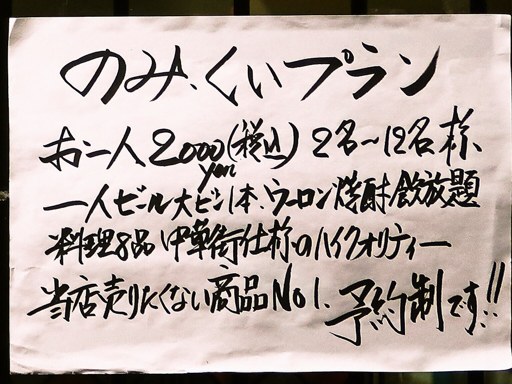 のみ、くいプラン
お一人2000(税込) 2名～12名様、
yen
一人ビール大ビン1本、ウーロン焼酎飲放題
料理8品 中華街仕様のハイクオリティー
当店売りたくない商品No1. 予約制です!!